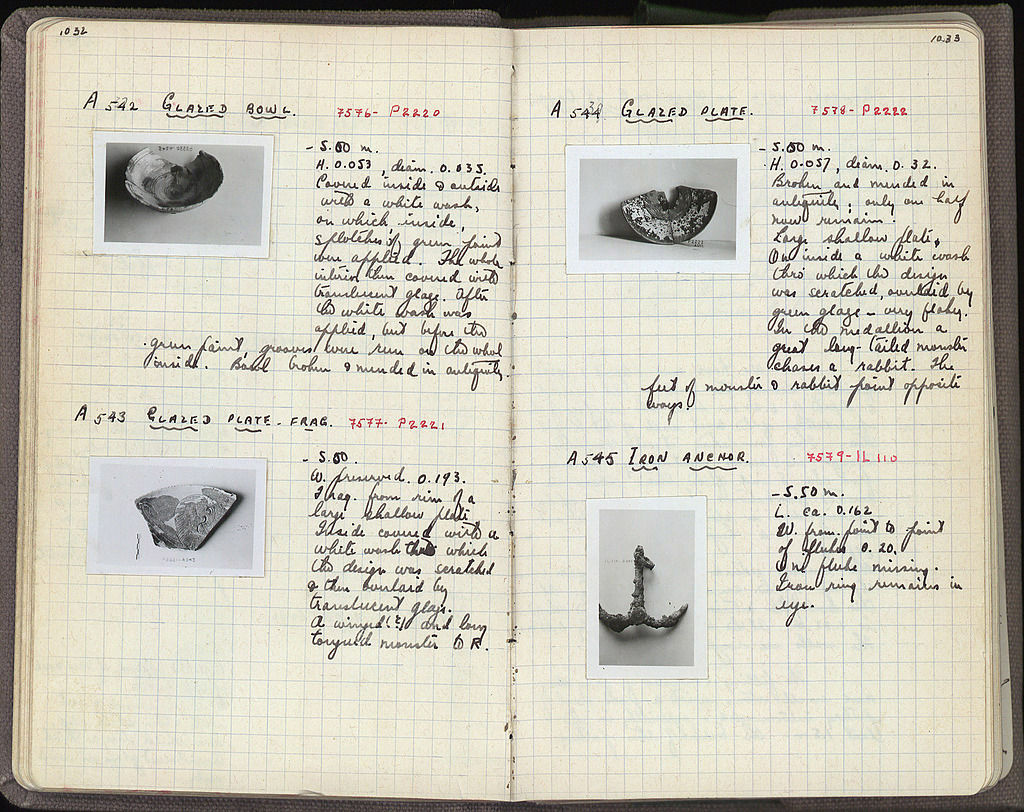 1032
A 542 GLAZED BOWL.
7576- P2220
- 5.00 m.
H. 0.053, diam. 0.035.
Covered inside & outside
with a white wash,
on which inside,
splotches of green paint
were applied. The whole
interior then covered with
translucent glaze. After
the white wash was
applied, but before the
green paint, grooves were run on the whole
inside. Bowl broken & mended in antiquity.
A 543 GLAZED PLATE - FRAG.
7577- P2221
- 5.00.
W. preserved. 0.193.
Frag. from rim of a
large shallow plate
Inside covered with a
white wash thro which
the design was scratched
& then overlaid by
translucent glaze.
A winged (?) and long
tongued monster to R.
1033
A 544 GLAZED PLATE.
7578- P2222
- 5.00 m.
H. 0.057, diam. 0.32.
Broken and mended in
antiquity; only one half
now remains.
Large shallow plate.
On inside a white wash
thro which the design
was scratched, overlaid by
green glaze - very flakey.
In the medallion a
great long-tailed monster
chases a rabbit. The
feet of monster & rabbit point opposite
ways.
A 545 IRON ANCHOR.
7579- IL 110
- 5.50 m.
L. ca. 0.162
W. from point to point
of flukes 0.20.
One fluke missing.
Iron ring remains in
eye.